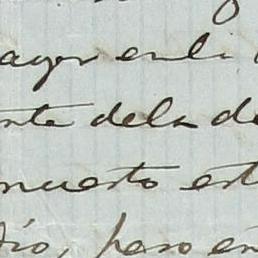 ayer en li
nte dela de
nuesto est
dio, paso en